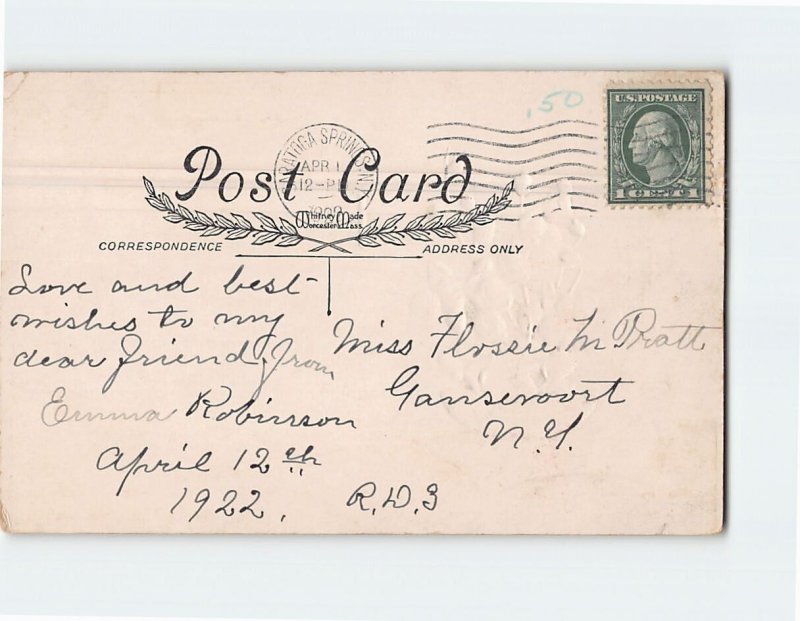 .50
U.S. POSTAGE
1 CENT 1
SPRINGS, N.Y.
APR 1
12-P
Post Card
Whitney Made
Worcester, Mass.
CORRESPONDENCE
ADDRESS ONLY
Love and best
wishes to my
dear friend, from
Emma Robinson
April 12th
1922.
Miss Flossie M Pratt
Gansevoort
N.Y.
R.D.3